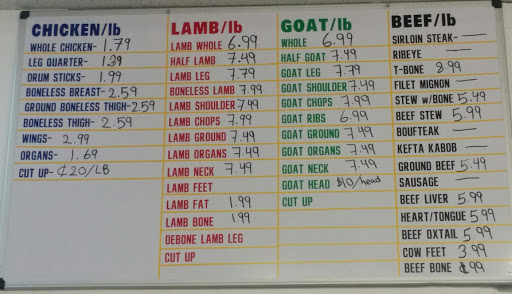 CHICKEN/lb
WHOLE CHICKEN- 1.79
LEG QUARTER- 1.39
DRUM STICKS- 1.99
BONELESS BREAST- 2.59
GROUND BONELESS THIGH- 2.59
BONELESS THIGH- 2.59
WINGS- 2.99
ORGANS- 1.69
CUT UP- ¢20/LB
LAMB/lb
LAMB WHOLE 6.99
HALF LAMB 7.49
LAMB LEG 7.79
BONELESS LAMB 7.99
LAMB SHOULDER 7.49
LAMB CHOPS 7.99
LAMB GROUND 7.49
LAMB ORGANS 7.49
LAMB NECK 7.49
LAMB FEET
LAMB FAT 1.99
LAMB BONE 1.99
DEBONE LAMB LEG
CUT UP
GOAT/lb
WHOLE 6.99
HALF GOAT 7.49
GOAT LEG 7.79
GOAT SHOULDER 7.49
GOAT CHOPS 7.99
GOAT RIBS 6.99
GOAT GROUND 7.49
GOAT ORGANS 7.49
GOAT NECK 7.49
GOAT HEAD $10/head
CUT UP
BEEF/lb
SIRLOIN STEAK- —
RIBEYE —
T-BONE 8.99
FILET MIGNON —
STEW w/BONE 5.49
BEEF STEW 5.99
BOUFTEAK —
KEFTA KABOB —
GROUND BEEF 5.49
SAUSAGE —
BEEF LIVER 5.99
HEART/TONGUE 5.99
BEEF OXTAIL 5.99
COW FEET 3.99
BEEF BONE .99